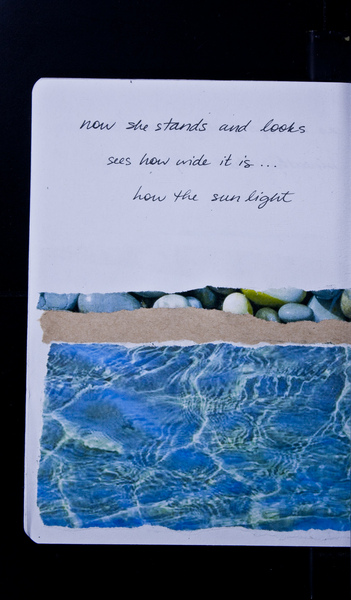 now she stands and looks
sees how wide it is...
how the sunlight